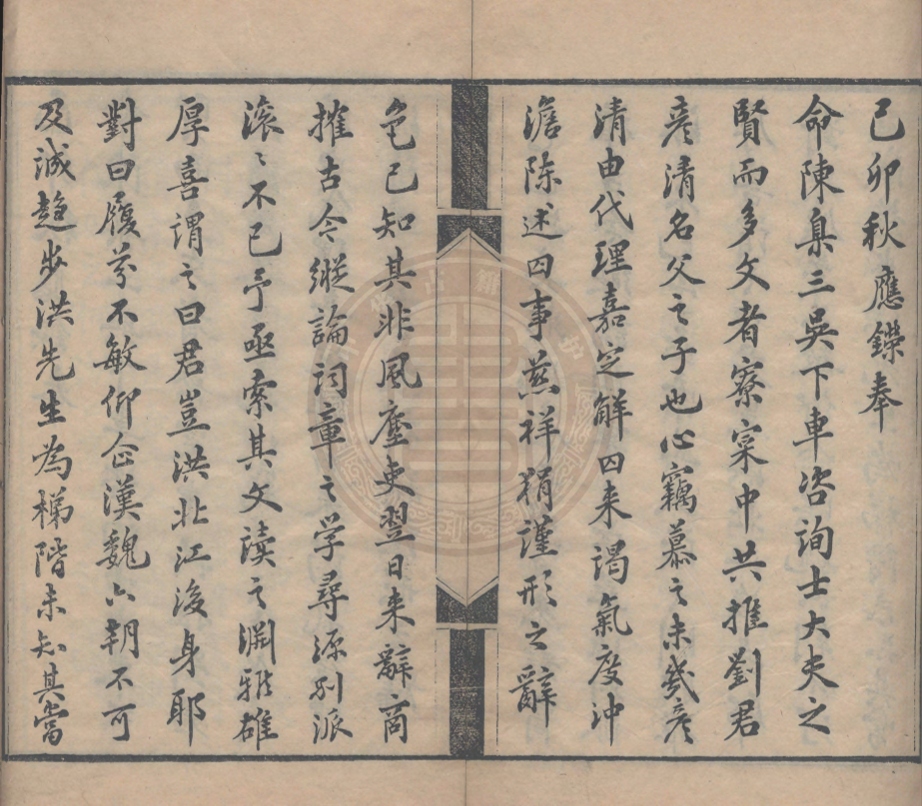 己卯秋應鑅奉
命陳臬三吳下車咨詢士大夫之
賢而多文者寮寀中共推劉君
彦清名父之子也心竊慕之未幾彦
清由代理嘉定解四来謁氣度沖
澹陈述四事慈祥狷謹形之辭
色已知其非風塵吏翌日来辭商
搉古今縱論詞章之学尋源别派
滚〻不已予亟索其文读之淵雅雄
厚喜謂之曰君豈洪北江後身耶
對曰履芬不敏仰企漢魏六朝不可
及诚趋步洪先生為梯階未知其當